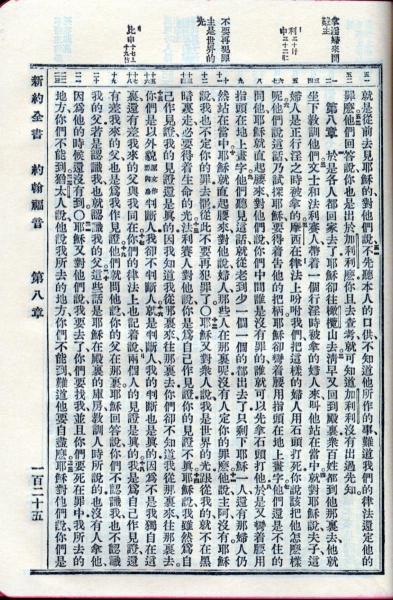 拿淫婦來問
難主
利二十廿
申二十二廿二
不要再犯罪
主是世界的
光
比申十七上
十九上
就是從前去見耶穌的對他們說不先聽本人的口供不知道他所作的事難道我們的律法還定他的
罪麼他們回答說你也是出於加利利麼你且去查考就可知道加利利沒有出過先知
第八章 於是各人都回家去了耶穌卻往橄欖山去清早又回到殿裏衆百姓都到他那裏去他就
坐下教訓他們文士和法利賽人帶着一個行淫時被拿的婦人來叫他站在當中就對耶穌說夫子這
婦人是正行淫之時被拿的摩西在律法上吩咐我們把這樣的婦人用石頭打死你說該把他怎麼樣
呢他們說這話乃試探耶穌要得着告他的把柄耶穌卻彎着腰用指頭在地上畫字他們還是不住的
問他耶穌就直起腰來對他們說你們中間誰是沒有罪的誰就可以先拿石頭打他於是又彎着腰用
指頭在地上畫字他們聽見這話就從老到少一個一個的都出去了只剩下耶穌一人還有那婦人仍
然站在當中耶穌就直起腰來對他說婦人那些人在那裏呢沒有人定你的罪麼他說主阿沒有耶穌
說我也不定你的罪去罷從此不要再犯罪了○耶穌又對衆人說我是世界的光跟從我的就不在黑
暗裏走必要得着生命的光法利賽人對他說你是爲自己作見證你的見證不眞耶穌說我雖然爲自
己作見證我的見證還是眞的因我知道我從那裏來往那裏去你們卻不知道我從那裏來往那裏去
你們是以外貌原文作肉身判斷人我卻不判斷人就是判斷人我的判斷也是眞的因爲不是我獨自在這
裏還有差我來的父與我同在你們的律法上也記着說兩個人的見證是眞的我是爲自己作見證還
有差我來的父也是爲我作見證他們就問他說你的父在那裏耶穌回答說你們不認識我也不認識
我的父若是認識我也就認識我的父這些話是耶穌在殿裏的庫房教訓人時所說的也沒有人拿他
因爲他的時候還沒有到○耶穌又對他們說我要去了你們要找我並且你們要死在罪中我所去的
地方你們不能到猶太人說他說我所去的地方你們不能到難道他要自盡麼耶穌對他們說你們是
新約全書 約翰福音 第八章 一百二十五